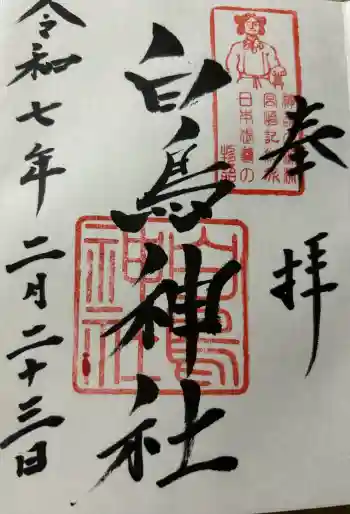 奉拝
日本武尊の
白鳥神社
白鳥
神社
令和七年二月二十三日